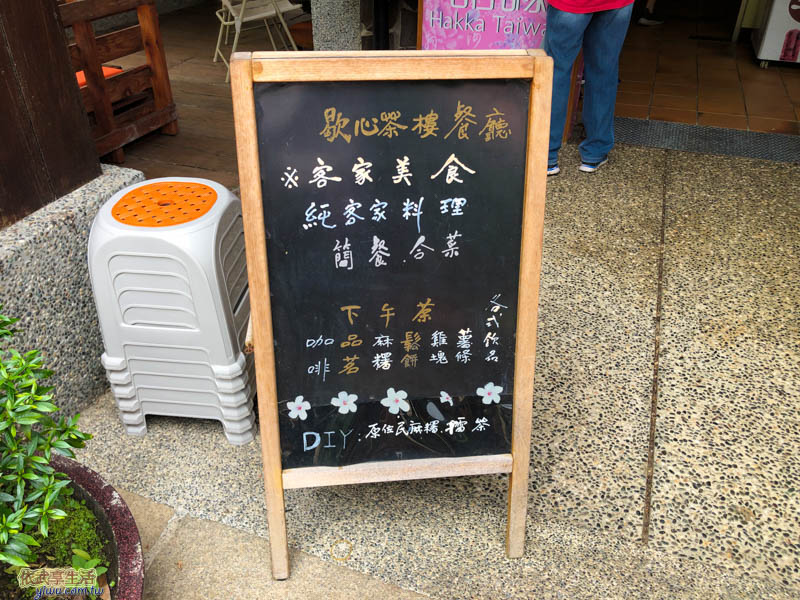 Hakka Taiwa
歇心茶樓餐廳
※客家美食
純客家料理
簡餐.合菜
下午茶
各式飲品
咖啡
品茗
麻糬
鬆餅
雞塊
薯條
DIY:原住民麻糬.擂茶
依玟享生活
yiwu.com.tw